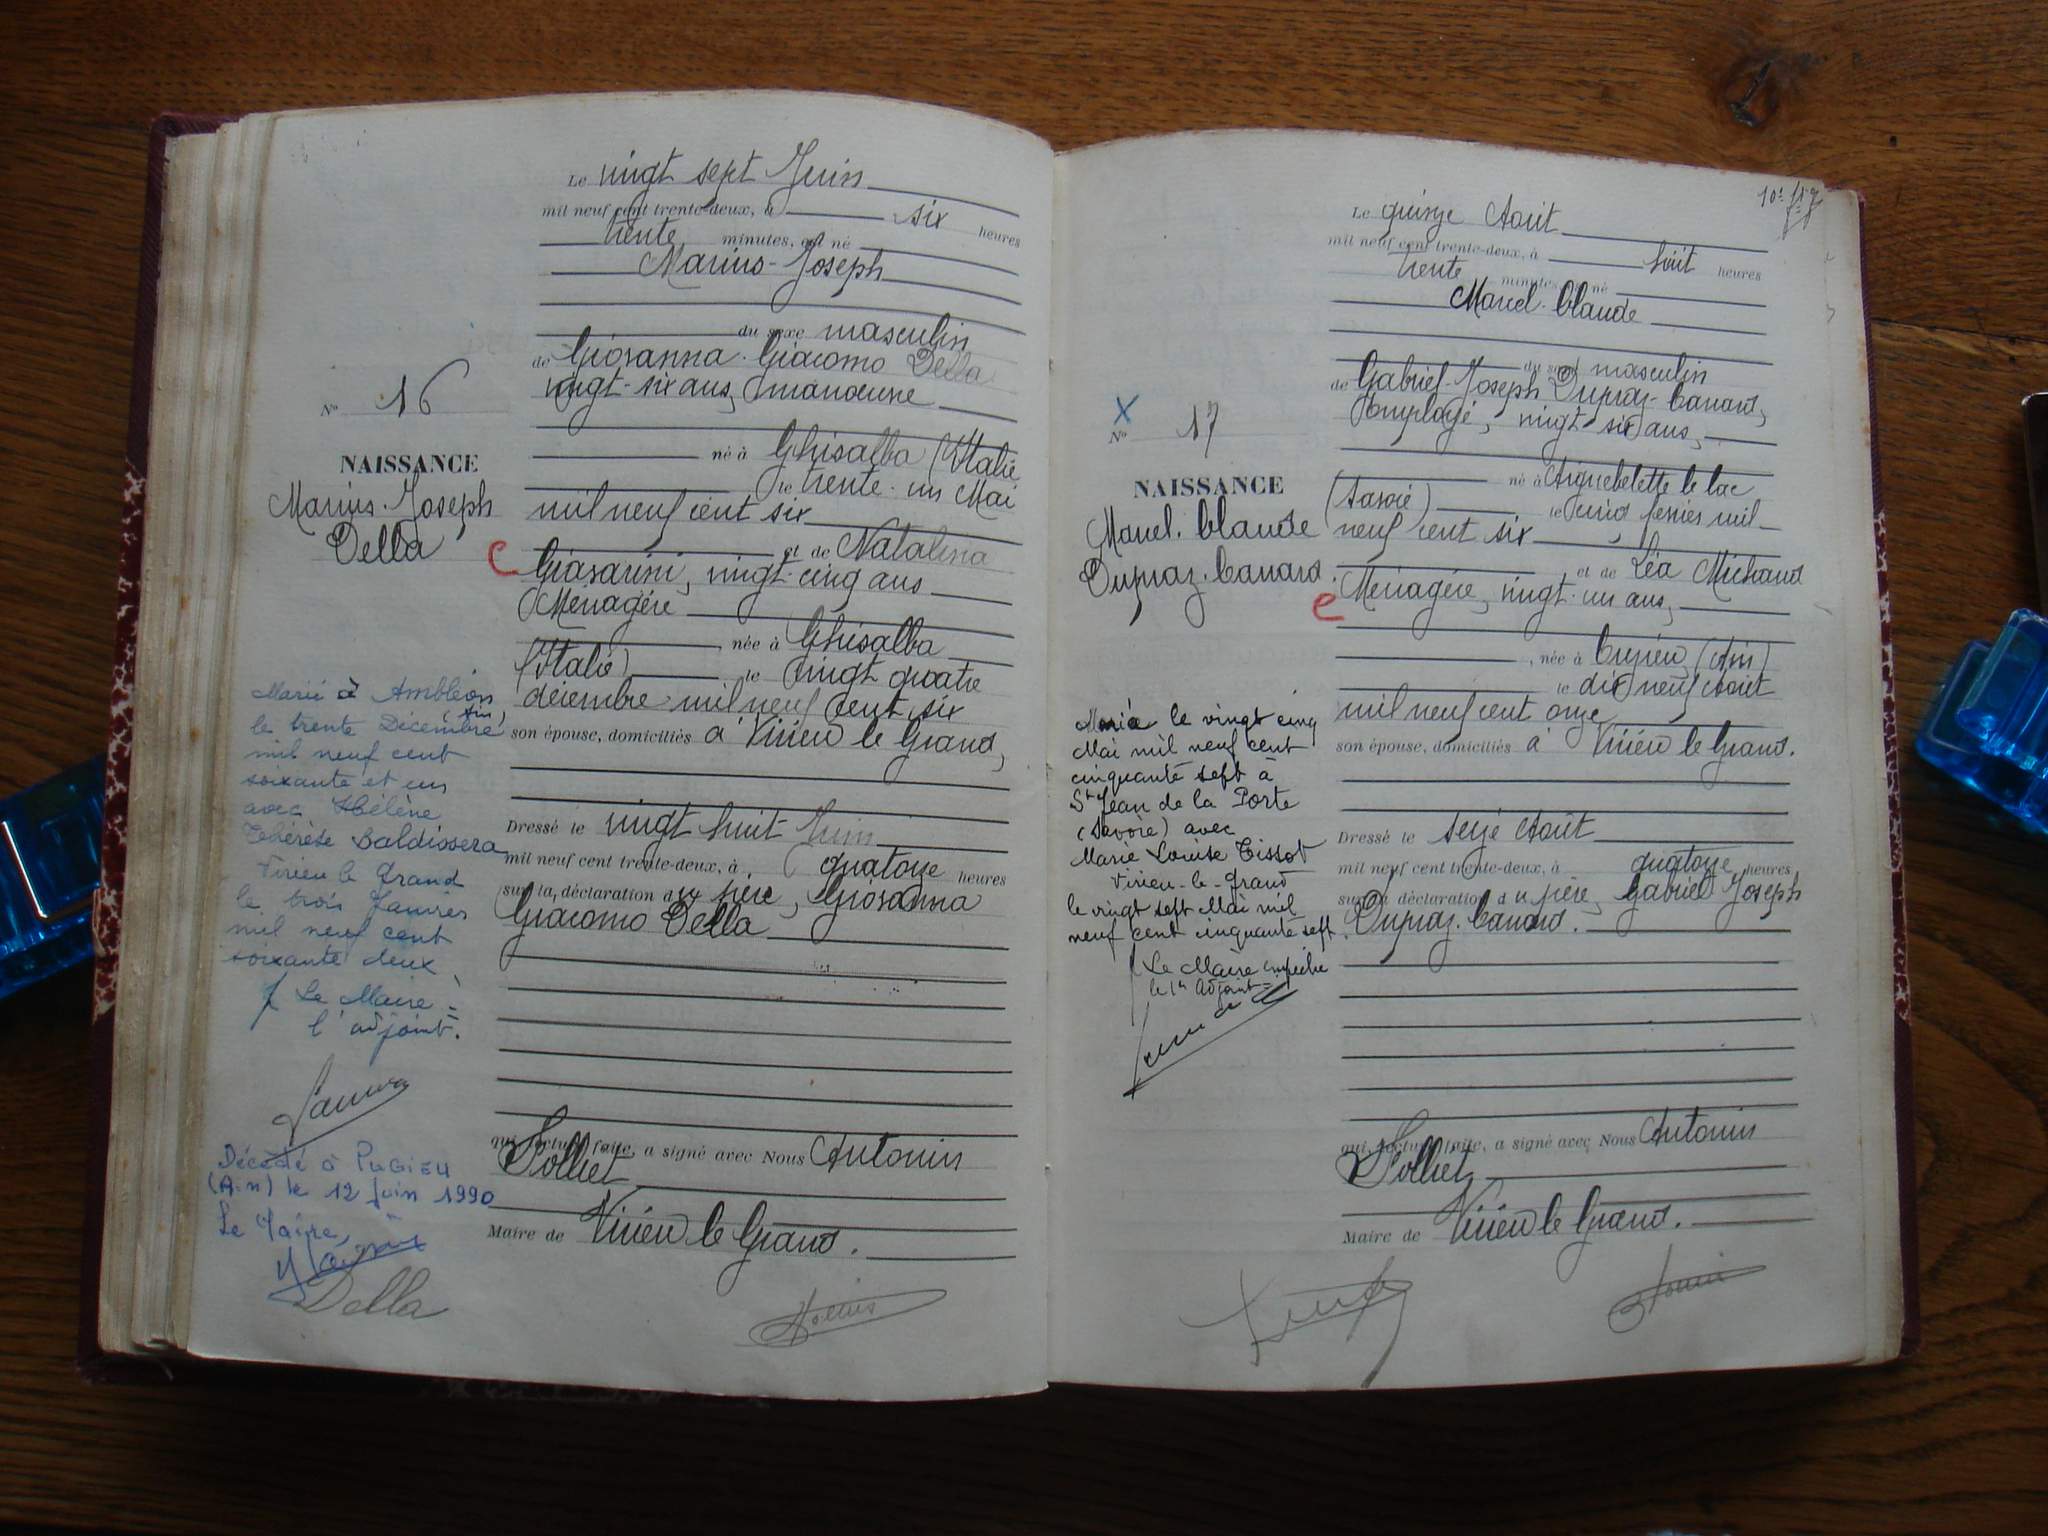 Le vingt sept Juin
mil neuf cent trente-deux, à six heures
trente minutes, est né
Marius-Joseph
du sexe masculin
de Giosanna Giacomo Della
vingt-six ans, manoeuvre
né à Ghisalba (Italie
le trente-un Mai
mil neuf cent six
et de Natalina
vingt-cinq ans
Ménagère
née à Ghisalba
(Italie) le vingt quatre
décembre mil neuf cent six
son épouse, domiciliés à Virieu le Grand,
Dressé le vingt huit Juin
mil neuf cent trente-deux, à quatorze heures
sur la déclaration du père, Giosanna
Giacomo Della
qui, lecture faite, a signé avec Nous Antonin
Solliet
Maire de Virieu le Grand.
N° 16
NAISSANCE
Marius-Joseph
Della
Marié à Ambléon
(Ain)
le trente Décembre
mil neuf cent
soixante et un
avec Hélène
Thérèse Baldissera
Virieu le Grand
le trois Janvier
mil neuf cent
soixante deux
Le Maire =
l'adjoint.
Décédé à PUGIEU
(Ain) le 12 Juin 1990
Le Maire,
Della
Le quinze Août
mil neuf cent trente-deux, à huit heures
trente minutes, est né
Marcel-Claude
du sexe masculin
de Gabriel-Joseph Dupraz-Canard,
Employé, vingt-six ans,
né à Aiguebelette le lac
(Savoie) le cinq février mil
neuf cent six
et de Léa Michaud
Ménagère, vingt-un ans,
née à Cuzieu (Ain)
le dix neuf Août
mil neuf cent onze
son épouse, domiciliés à Virieu le Grand.
Dressé le seize Août
mil neuf cent trente-deux, à quatorze heures
sur la déclaration du père, Gabriel Joseph
Dupraz-Canard.
qui, lecture faite, a signé avec Nous Antonin
Solliet
Maire de Virieu le Grand.
X
N° 17
NAISSANCE
Marcel-Claude
Dupraz-Canard.
Marié le vingt cinq
Mai mil neuf cent
cinquante sept à
St Jean de la Porte
(Savoie) avec
Marie Louise Tissot
Virieu-le-Grand
le vingt sept Mai mil
neuf cent cinquante sept.
Le Maire empêché
le 1er Adjoint =